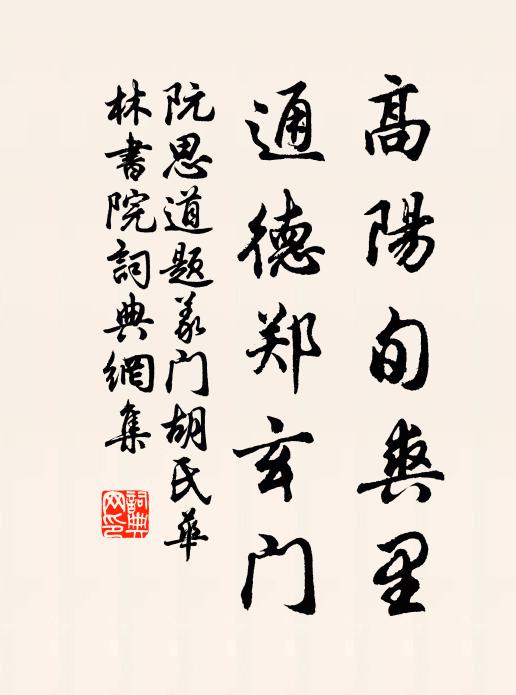 高陽旬爽里
通德郑玄门
阮思道题义门胡氏華
林書院詞典網集
詞典
网印